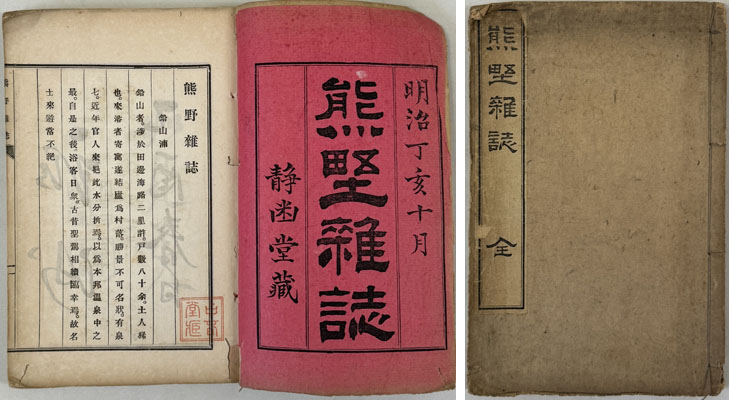 明治丁亥十月
熊野雜誌
靜堂藏
熊野雜誌
鉛山浦
鉛山者。涉於田邊海路二里許。戸數八十余。土人稀
也。來浴者寄寓遂結廬爲村落。勝景不可名狀。有泉
七。近年官人來此水分析焉。以爲本邦温泉中之
最。自是之後。浴客日衆。古昔聖駕相續臨幸焉。故名
士來遊常不絶
熊野雜誌 全